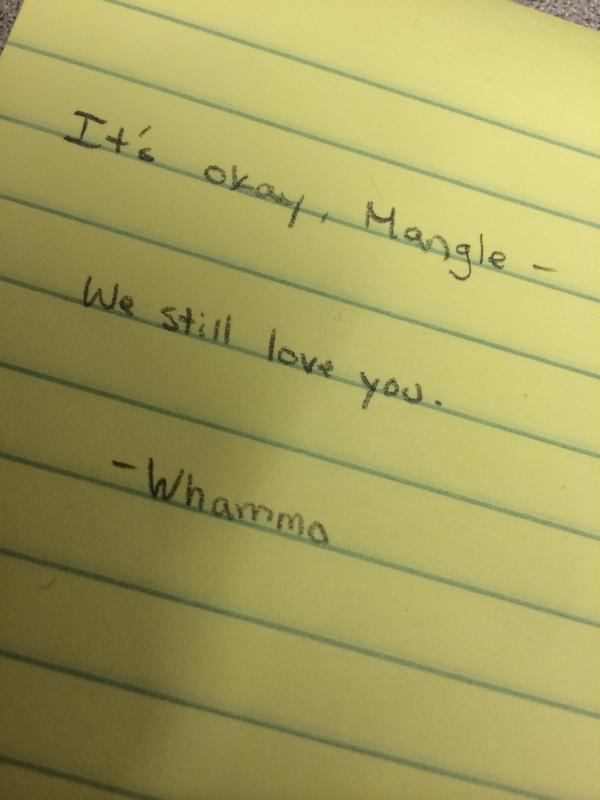 It's okay, Mangle -
We still love you.
-Whammo